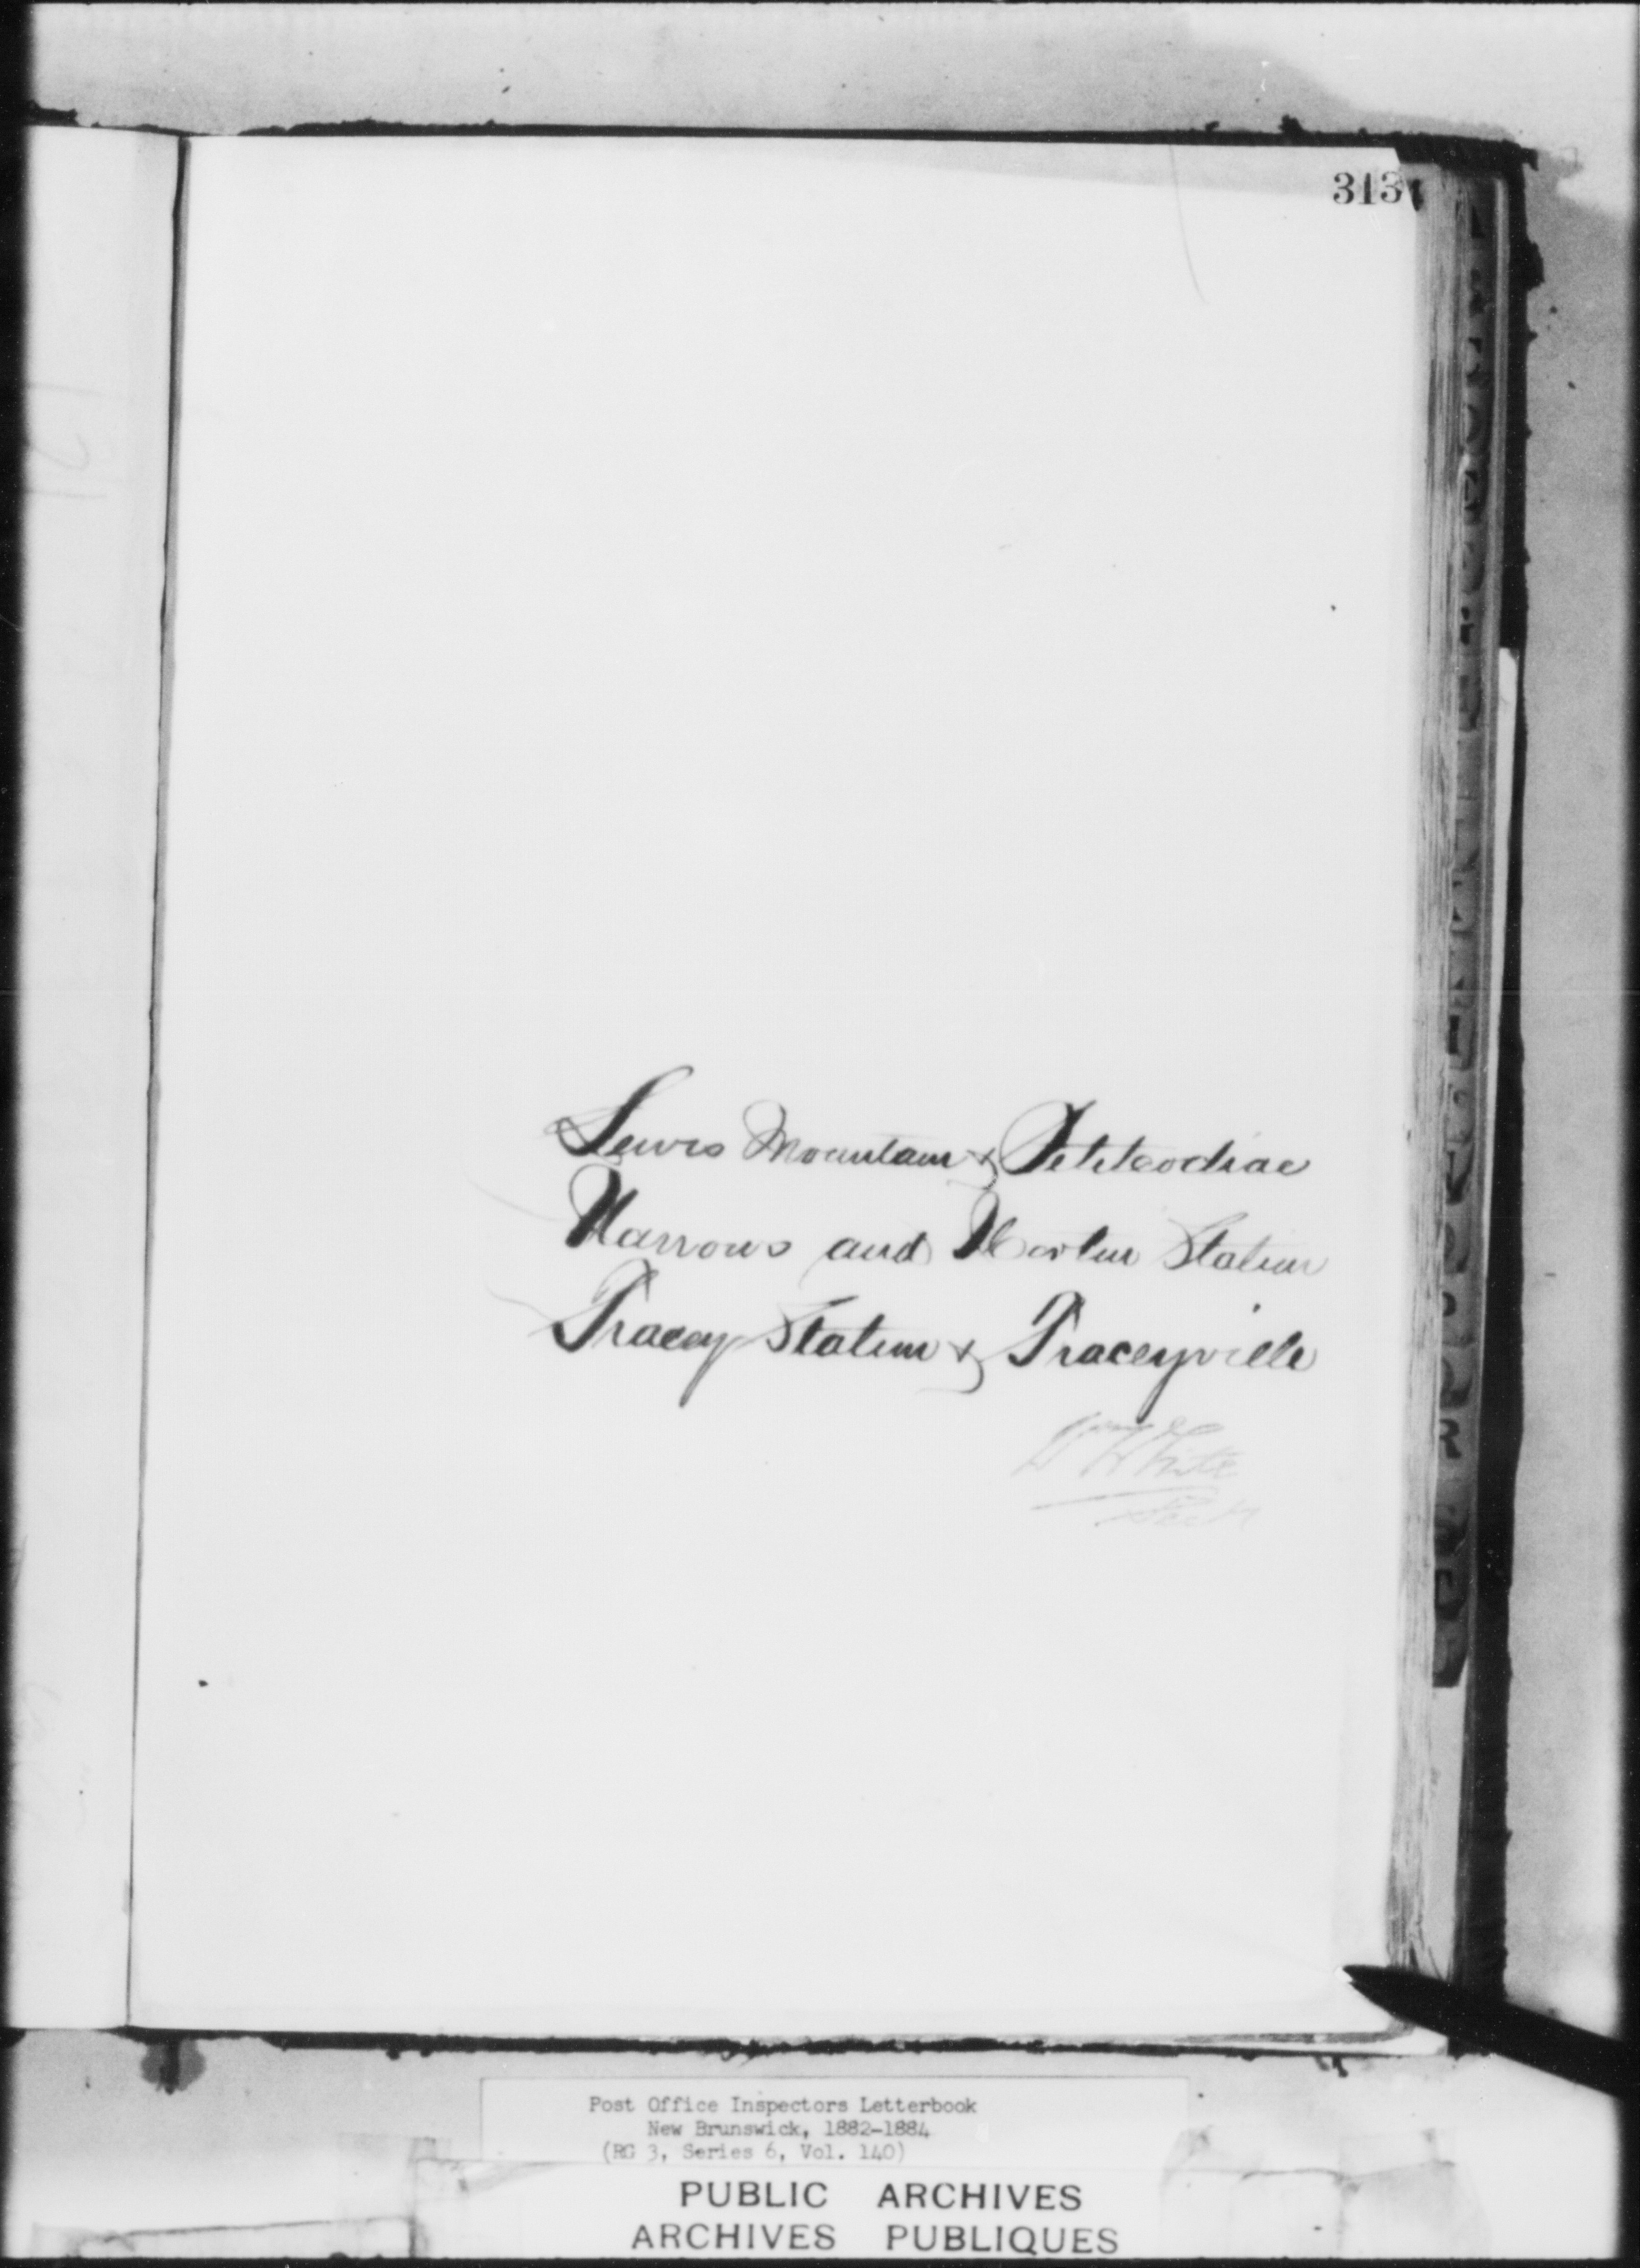 313
Lewis Mountain & Petitcodiac
Narrows and Norton Station
Tracey Station & Traceyville
White
Post Office Inspectors Letterbook
New Brunswick, 1882-1884
(RG 3, Series 6, Vol. 140)
PUBLIC ARCHIVES
ARCHIVES PUBLIQUES